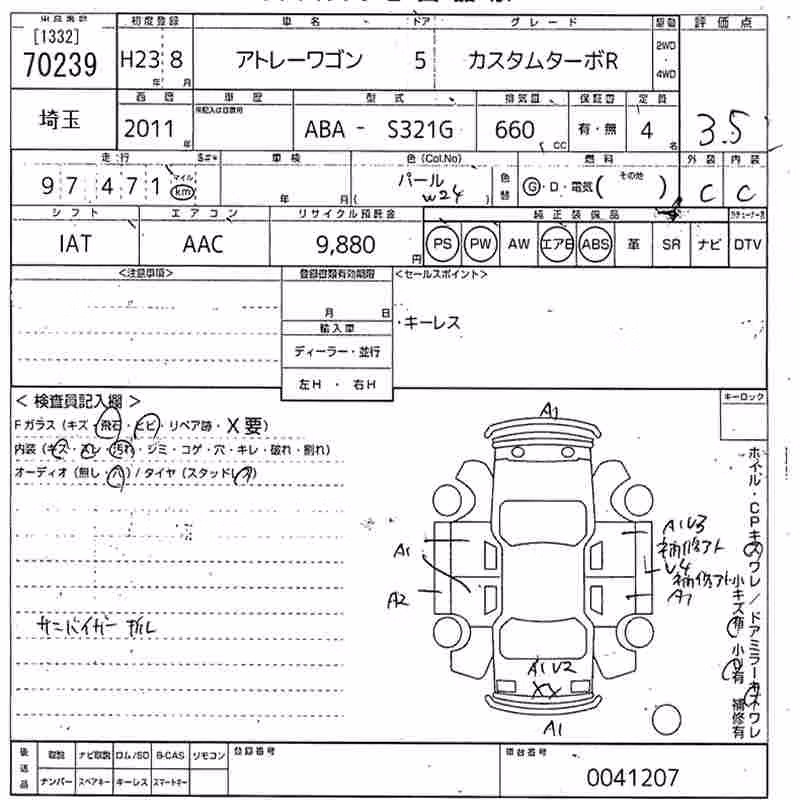 初度登録 車名 ドア グレード 駆動 評価点
[1332]
70239
H23 8 アトレーワゴン 5 カスタムターボR 2WD・4WD
年 月
埼玉
西暦 車歴 型式 排気量 保証書 定員
2011年 ABA - S321G 660 CC 有・無 4 名
3.5
走行 $#* 車検 色(Col.No) 燃料 外装 内装
97471 マイル km 年 月 パール W24 色替 G・D・電気( その他 ) C C
シフト エアコン リサイクル預託金 純正装備品
IAT AAC 9,880円 PS PW AW エアB ABS 革 SR ナビ DTV
<注意事項> 登録書類有効期限 <セールスポイント>
月 日
・キーレス
輸入車
ディーラー・並行
左H ・ 右H
キーロック
< 検査員記入欄 >
Fガラス(キズ・飛石・ヒビ・リペア跡・X要)
内装(キズ・スレ・汚れ・ジミ・コゲ・穴・キレ・破れ・割れ)
オーディオ(無し・穴)/タイヤ(スタッドレス)
A1
A1 A1U3
補修アト
U4
A2 補修アト
A1
サンバイザー ガル
A1U2
XX
A1
ホイル・CPキズワレ/ドアミラーキズワレ
小キズ有 小U有 補修有
後送品 取説 ナビ取説 ロム/SD B-CAS リモコン 登録番号 車台番号
ナンバー スペアキー キーレス スマートキー
0041207